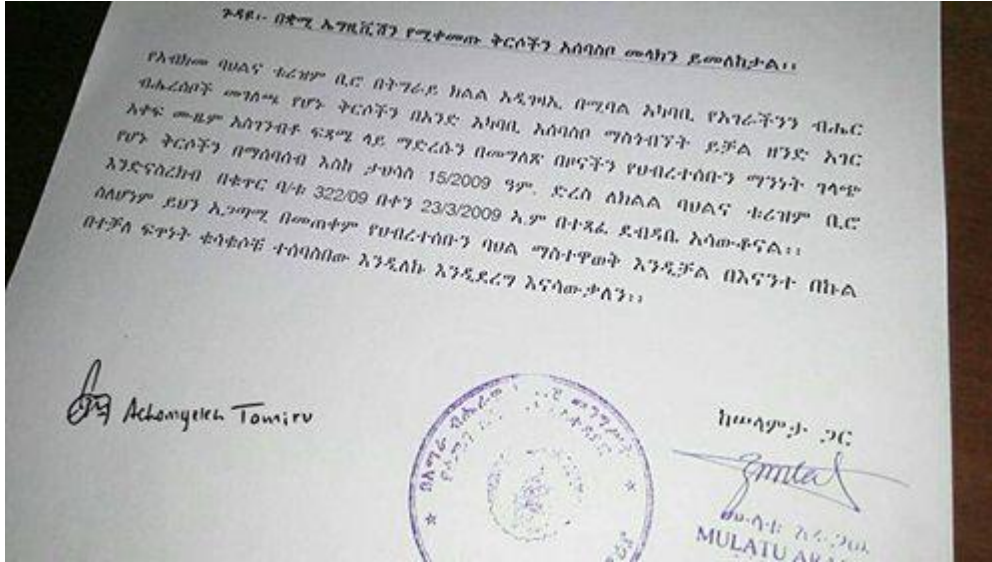 ጉዳዩ፡- በቋሚ ኤግዚቪሽን የሚቀመጡ ቅርሶችን አሰባስቦ መላክን ይመለከታል፡፡
የአብክመ ባህልና ቱሪዝም ቢሮ በትግራይ ክልል አዲገዛኢ በሚባል አካባቢ የአገራችንን ብሔር
ብሔረሰቦች መገለጫ የሆኑ ቅርሶችን በአንድ አካባቢ አሰባስቦ ማስጎብኘት ይቻል ዘንድ አገር
አቀፍ ሙዜም አስገንብቶ ፍጻሜ ላይ ማድረሱን በመግለጽ በዞናችን የህብረተሰቡን ማንነት ገላጭ
የሆኑ ቅርሶችን በማሰባሰብ እስከ ታህሳስ 15/2009 ዓም. ድረስ ለክልል ባህልና ቱሪዝም ቢሮ
እንድናስረክብ በቁጥር ባ/ቱ 322/09 በቀን 23/3/2009 ኢ.ም በተጻፈ ደብዳቤ አሳውቆናል፡፡
ስለሆነም ይህን ኢጋጣሚ በመጠቀም የህብረተሰቡን ባህል ማስተዋወት እንዲቻል በእናንተ በኩል
በተቻለ ፍጥነት ቁሳቁሶቹ ተሰባስበው እንዲለኩ እንዲደረግ እናሳውቃለን፡፡
Achemyeleh Tamiru
ከሠላምታ ጋር
በአማራ ብሔራዊ መንግሥት
ሙላቱ
MULATU